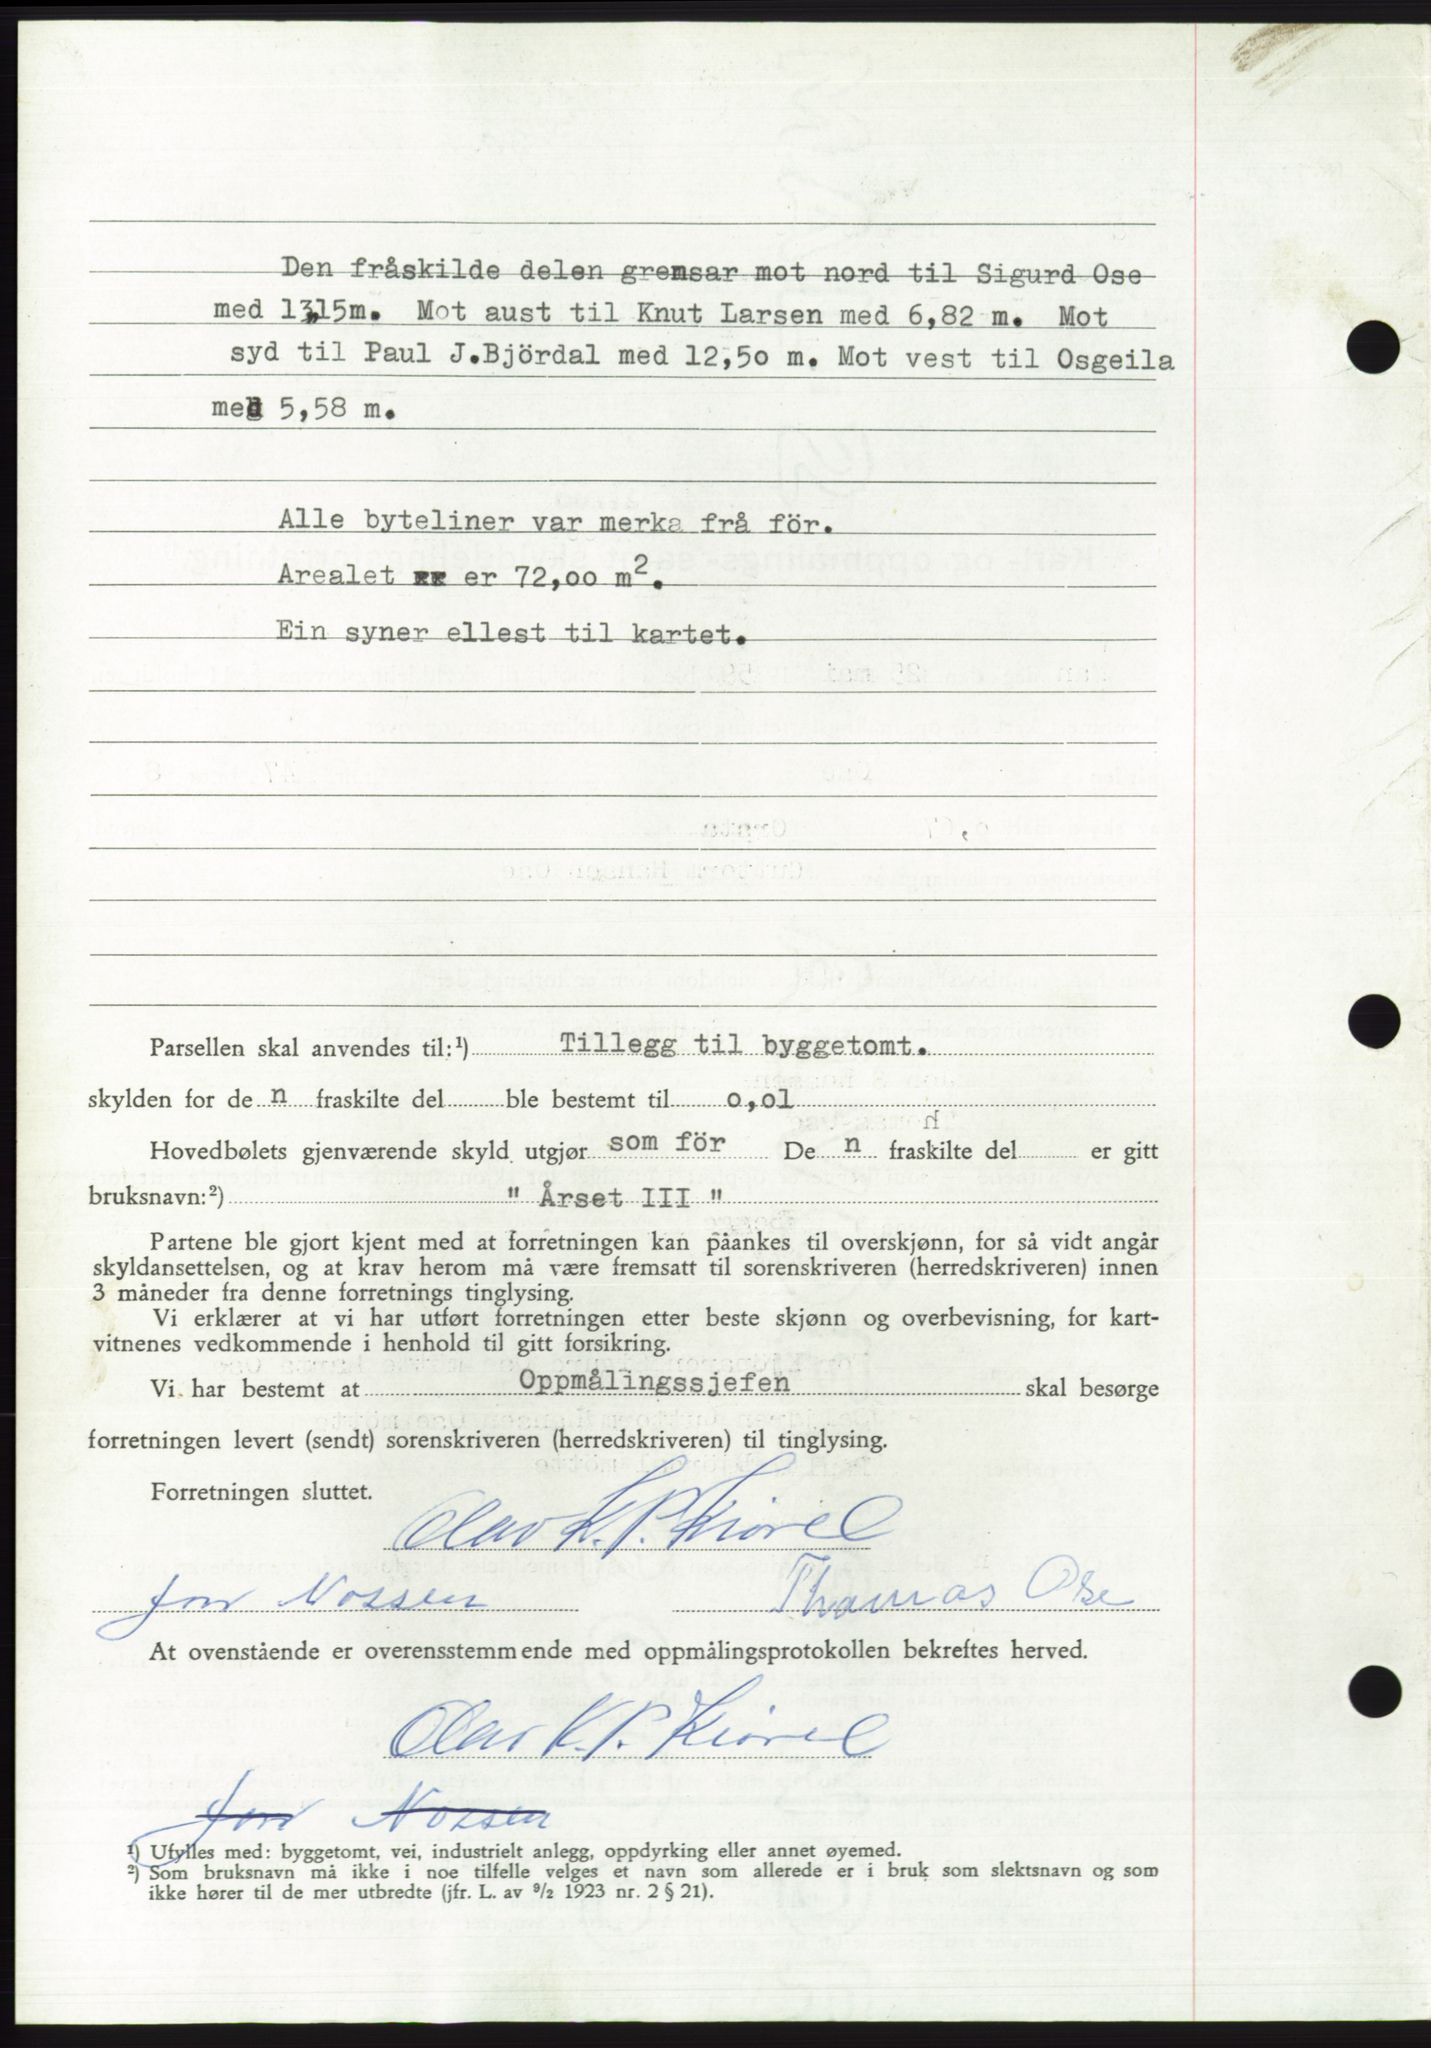 Den fråskilde delen grensar mot nord til Sigurd Ose
med 13,15m. Mot aust til Knut Larsen med 6,82 m. Mot
syd til Paul J.Björdal med 12,50 m. Mot vest til Osgeila
med 5,58 m.
Alle byteliner var merka frå för.
Arealet xx er 72,00 m².
Ein syner ellest til kartet.
Parsellen skal anvendes til:¹) Tillegg til byggetomt.
skylden for de n fraskilte del ble bestemt til 0,01
Hovedbølets gjenværende skyld utgjør som för De n fraskilte del er gitt
bruksnavn:²) " Årset III "
Partene ble gjort kjent med at forretningen kan påankes til overskjønn, for så vidt angår
skyldansettelsen, og at krav herom må være fremsatt til sorenskriveren (herredskriveren) innen
3 måneder fra denne forretnings tinglysing.
Vi erklærer at vi har utført forretningen etter beste skjønn og overbevisning, for kart-
vitnenes vedkommende i henhold til gitt forsikring.
Vi har bestemt at Oppmålingssjefen skal besørge
forretningen levert (sendt) sorenskriveren (herredskriveren) til tinglysing.
Forretningen sluttet.
Olav K. P. Kiövel
Jon Nossen Thomas Ose
At ovenstående er overensstemmende med oppmålingsprotokollen bekreftes herved.
Olav K. P. Kiövel
Jon Nossen
¹) Ufylles med: byggetomt, vei, industrielt anlegg, oppdyrking eller annet øyemed.
²) Som bruksnavn må ikke i noe tilfelle velges et navn som allerede er i bruk som slektsnavn og som
ikke hører til de mer utbredte (jfr. L. av ⁹/₂ 1923 nr. 2 § 21).